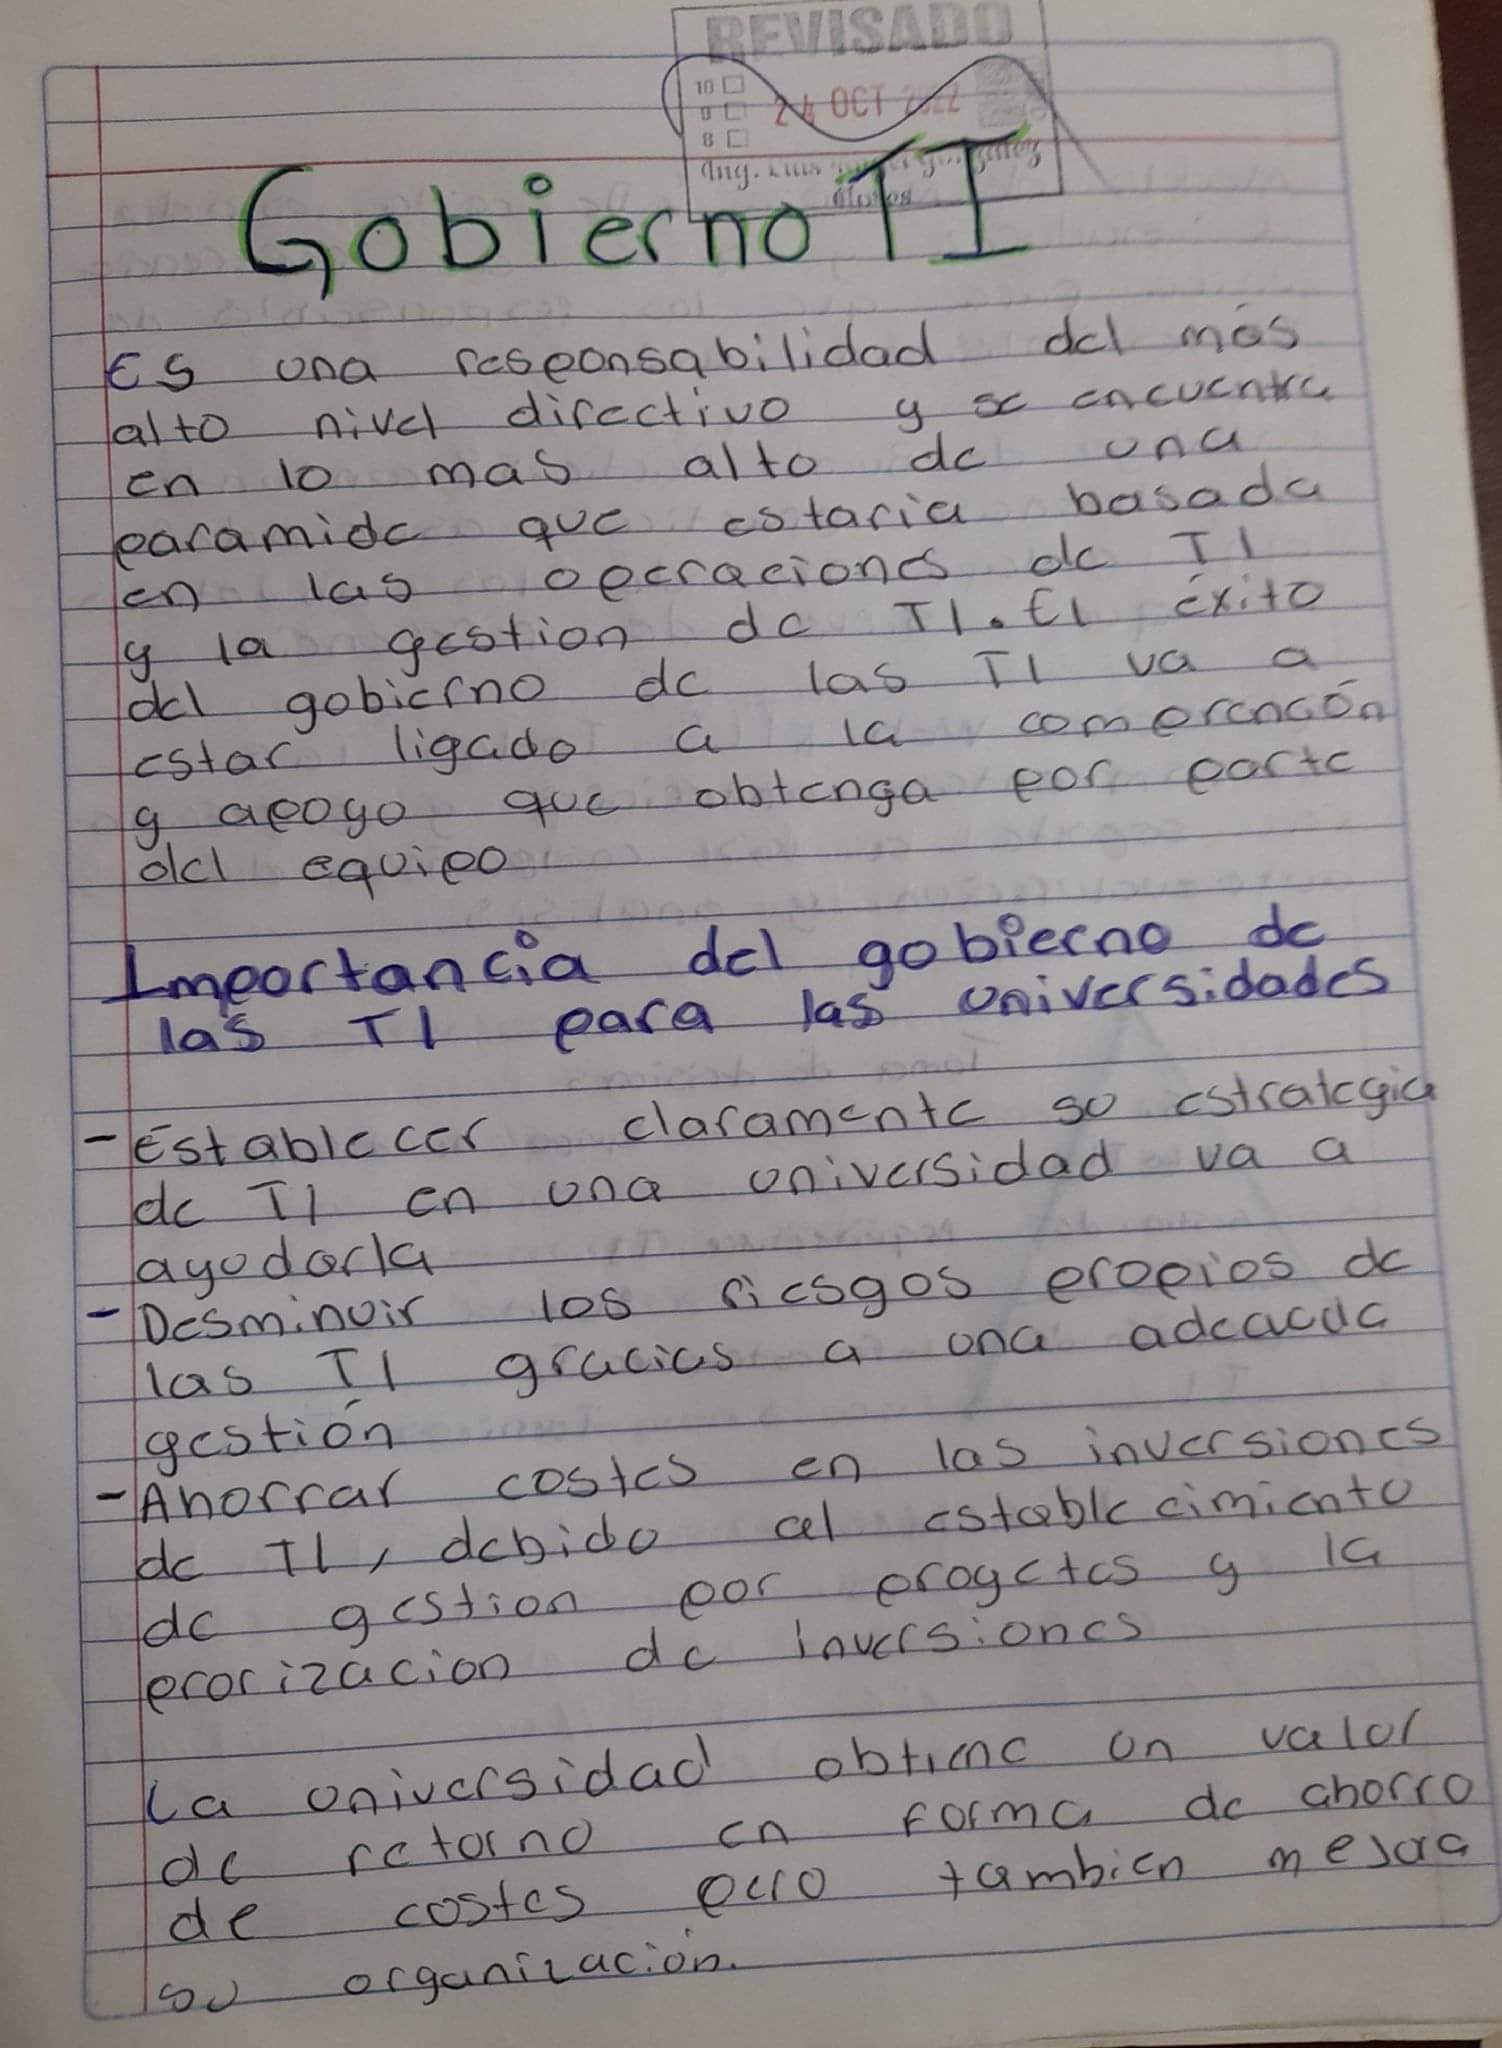 REVISADO
10
9
8
24 OCT 2022
Ing.
Gobierno TI
Es una responsabilidad del más
alto nivel directivo y se encuentra
en lo mas alto de una
paramide que estaria basada
en las operaciones de TI
y la gestion de TI. El éxito
del gobierno de las TI va a
estar ligado a la comprención
y apoyo que obtenga por parte
del equipo
Importancia del gobierno de
las TI para las universidades
- Establecer claramente su estrategia
de TI en una universidad va a
ayudarla
- Desminuir los riesgos propios de
las TI gracias a una
gestión
- Ahorrar costes en las inversiones
de TI, debido al establecimiento
de gestion por proyetcs y la
prorizacion de inversiones
La universidad obtiene un valor
de retorno en forma de ahorro
de costes pero tambien mejora
su organización.